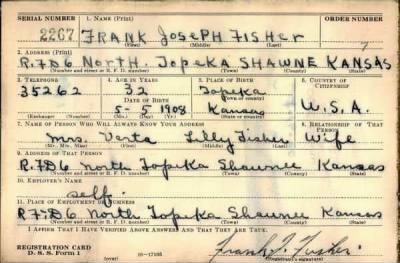 SERIAL NUMBER 1. NAME (Print) ORDER NUMBER
2267 FRANK JOSEPH FISHER
(First) (Middle) (Last)
2. ADDRESS (Print)
R.F.D 6 NORTH. TOPEKA SHAWNE KANSAS
(Number and street or R. F. D. number) (Town) (County) (State)
3. TELEPHONE 4. AGE IN YEARS 5. PLACE OF BIRTH 6. COUNTRY OF CITIZENSHIP
35262 32 Topeka
DATE OF BIRTH (Town or county)
5-5 1908 Kansas U.S.A.
(Exchange) (Number) (Mo.) (Day) (Yr.) (State or country)
7. NAME OF PERSON WHO WILL ALWAYS KNOW YOUR ADDRESS 8. RELATIONSHIP OF THAT PERSON
Mrs. Verta Lilly Fisher Wife
(Mr., Mrs., Miss) (First) (Middle) (Last)
9. ADDRESS OF THAT PERSON
R.F.D 6 North Topeka Shawnee Kansas
(Number and street or R. F. D. number) (Town) (County) (State)
10. EMPLOYER'S NAME
self.
11. PLACE OF EMPLOYMENT OR BUSINESS
R.F.D 6 North Topeka Shawnee Kansas
(Number and street or R. F. D. number) (Town) (County) (State)
I AFFIRM THAT I HAVE VERIFIED ABOVE ANSWERS AND THAT THEY ARE TRUE.
REGISTRATION CARD
D. S. S. Form 1 (over) 16-17105 Frank J. Fisher
(Registrant's signature)